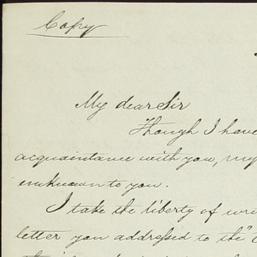 Copy
My dear Sir
Though I have
acquaintance with you, my
unknown to you.
I take the liberty of wri
letter you addressed to the "